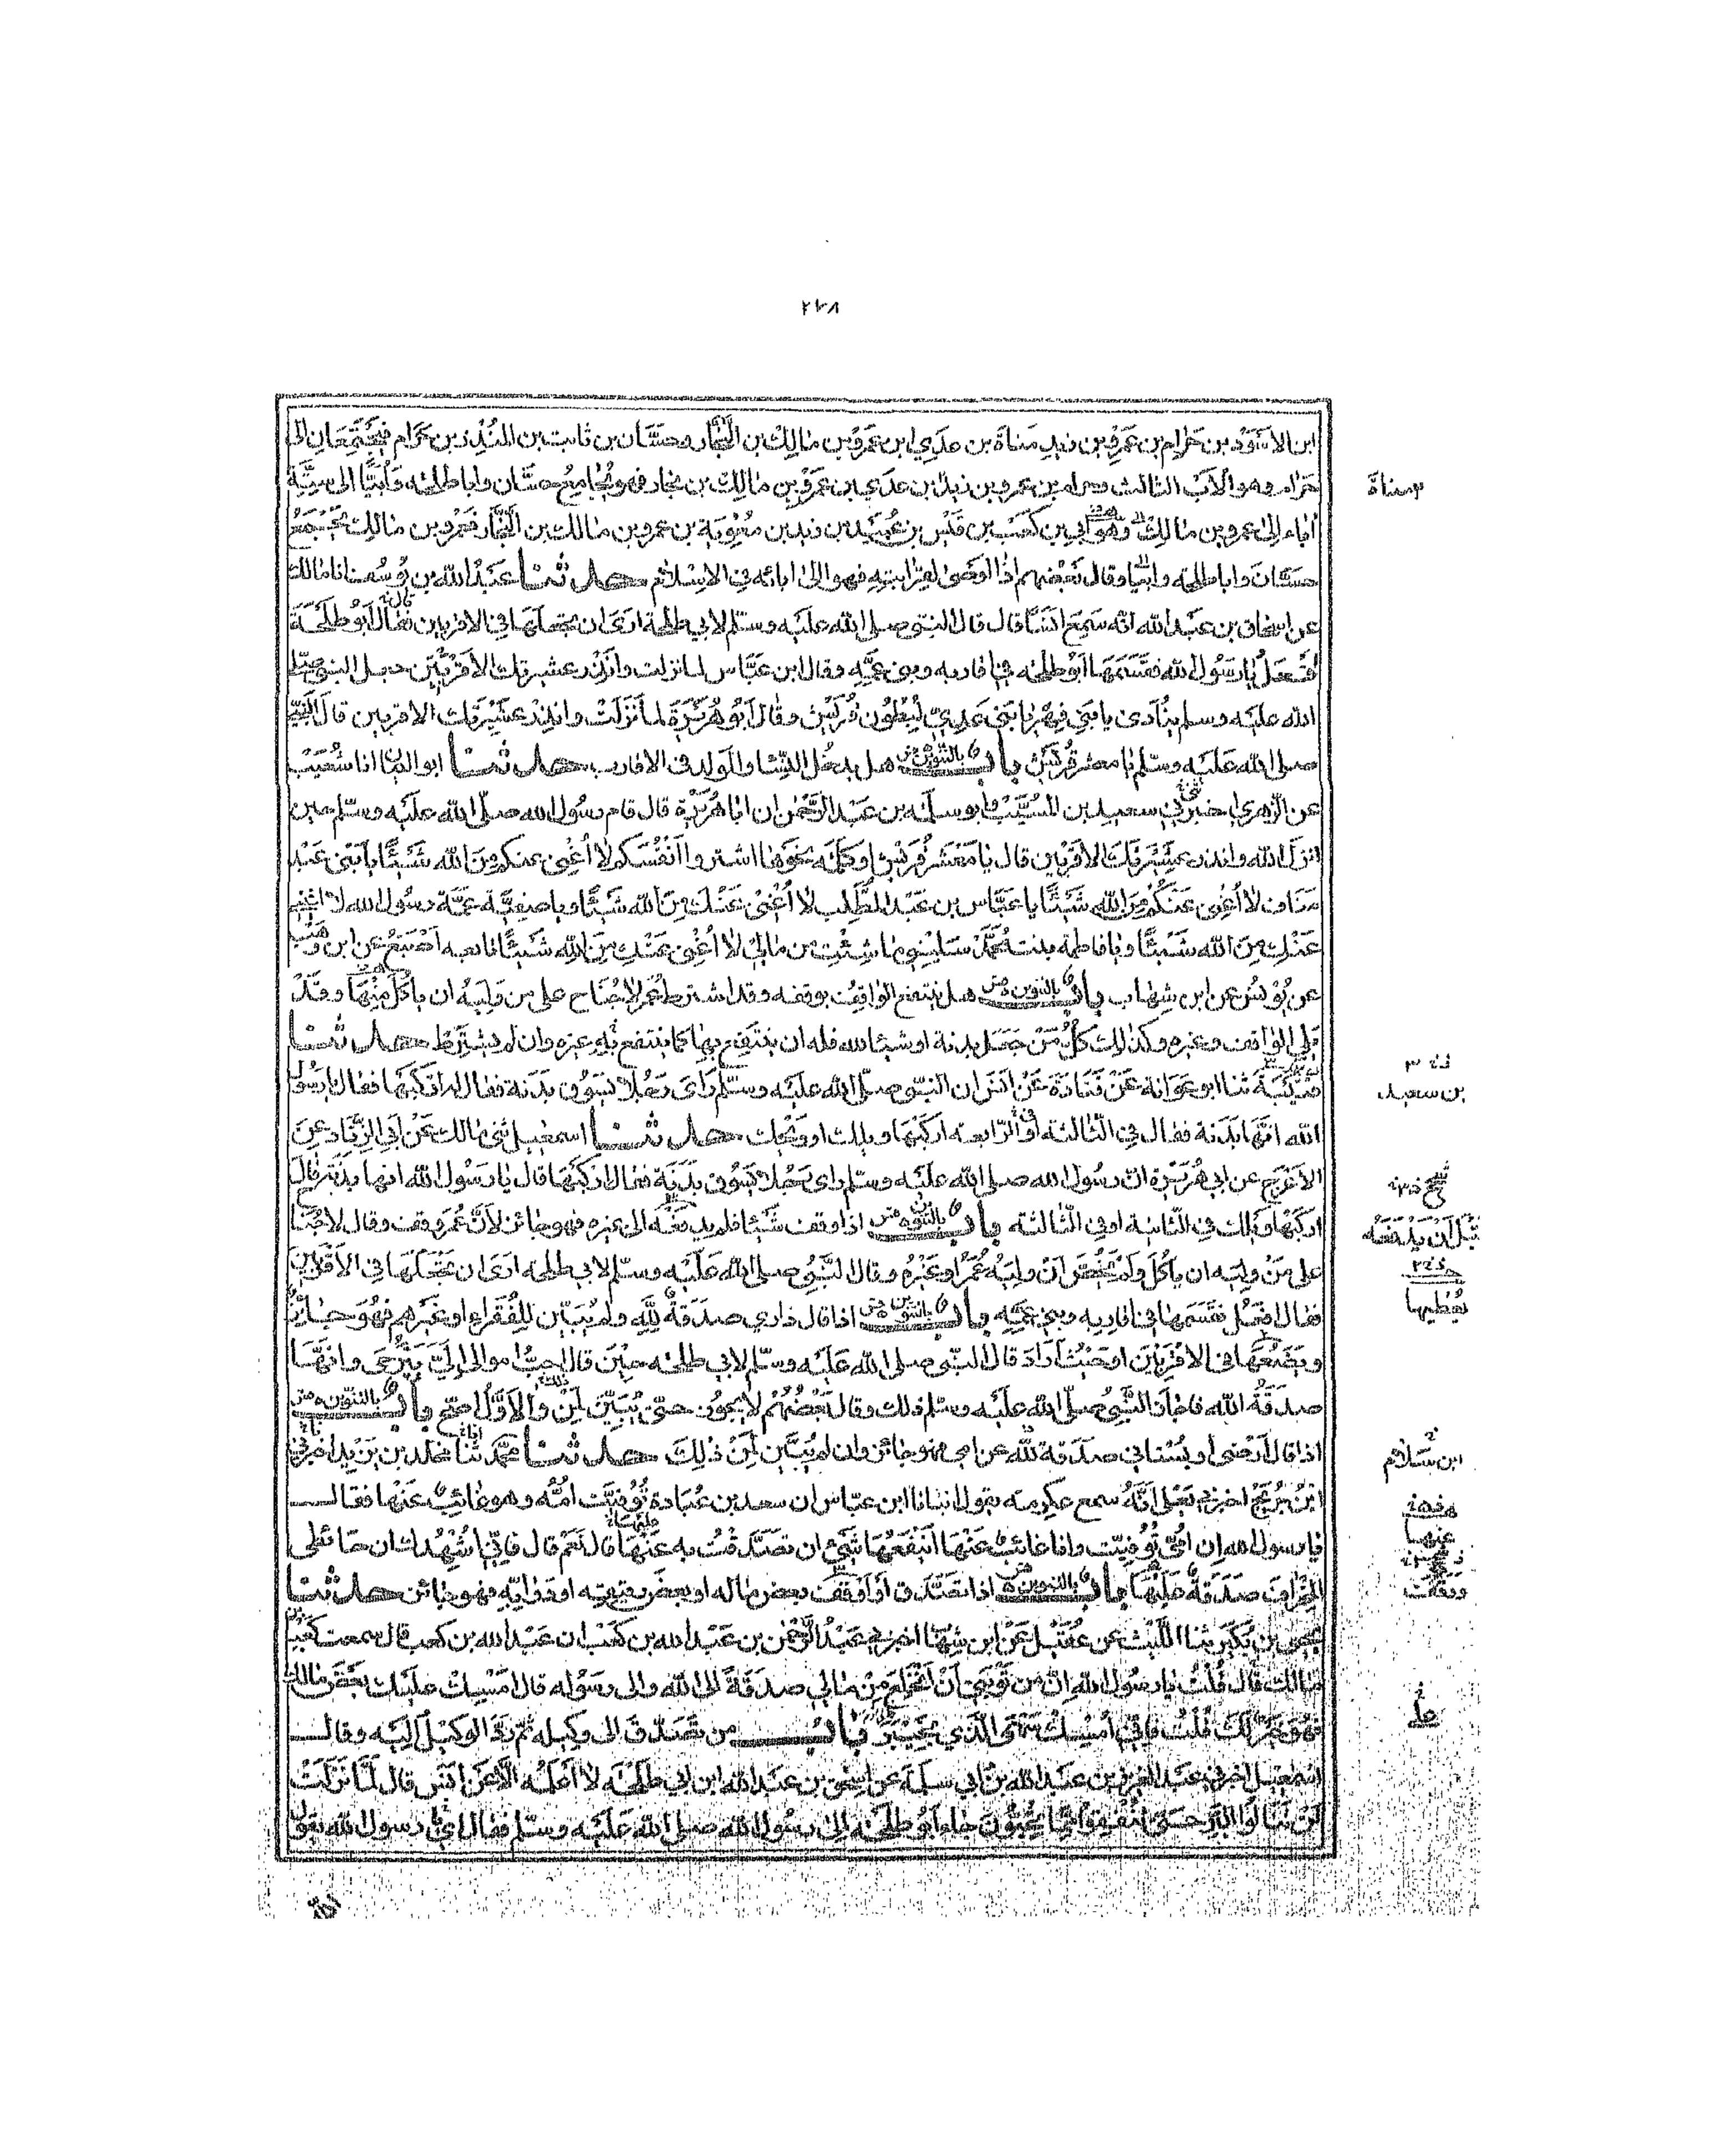 ٢٧٨
ابن الاسْوَد بن حَرام بن عَمرو بن زيد مَناة بن عَدِي ابن عَمرو بن مَالِك بن النَّجار وحَسَّان بن ثابت بن المُنْذِر بن حَرام فيَجْتَمِعَانِ الى
حَرام وهو الأَبُ الثالث وحرام بن عمرو بن زيد بن عَدي بن عَمرو بن مَالِك بن نجار فهو يُجامِعُ حسَّان وابا طلحة وأُبَيًّا الى سِتَّةِ
مناة
آباء الى عمرو بن مَالِك وهو ابي بن كَعْب بن قَيْس بن عُبَيْد بن زيد بن مُعٰوِيَة بن عمرو بن مَالك بن النَّجّار فعَمرو بن مَالِك يَجْمَعُ
حسّانَ وابا طلحة وابيّا وقال بَعْضُهم اذا اَوْصى لِقَرابتِه فهو الى ابائه في الاِسْلام حدثنا عَبْدُ الله بن يُوسُف انا مَالك
عن اسحاق بن عَبْد الله انّه سَمِعَ انَسًا قال قال النبيّ صلى الله عليه وسلّم لابي طلحة ارَى ان تجعلَهَا في الاقربين فقال اَبُو طَلْحَة
اَفْعَلُ يَا رَسُول الله فقَسَمَهَا اَبُو طلحة في اقاربه وبني عَمِّهِ وقال ابن عَبَّاس لما نزلت وانْذِر عشيرتك الاَقْرَبِين جعل النبيّ صلى
الله عليه وسلم يُنادى يا بَنِي فِهْر يَا بَنِي عَدِيّ لِبُطُون قُرَيْش وقالَ اَبُو هُرَيْرَة لما نَزَلَتْ وانذِر عشِيْرَتَك الاقربين قالَ النّبيّ
صلى الله عَلَيْه وسلّم يَا معشر قُرَيْش باب بالتنوين هل يدخُل النِّسَا والوَلد في الاقارب حدثنا ابو اليمان انا شُعَيْب
عن الزهري اخبرني سعيد بن المُسَيَّب وابو سلَمة بن عَبْد الرَّحْمٰن ان ابَا هُرَيْرَة قال قام رسُول الله صلّى الله عليه وسلّم حين
انزلَ الله وانذر عشِيْرَتَك الاَقْرَبين قال يَا مَعْشَرَ قُرَيْش اوكلِمَة نحوَهَا اشتروا اَنْفُسَكم لا أُغْنِي عنكم مِنَ الله شَيْئًا يا بَنِي عَبْد
مَنَاف لَا أُغْنِي عَنْكُم مِنَ الله شَيْئًا يا عَبَّاس بن عَبْد المطَّلِب لَا أُغْنِيْ عَنْكَ مِنَ الله شَيْئًا ويا صفِيَّة عَمَّة رسُول الله لا اغنِي
عَنْكِ مِنَ الله شَيْئًا ويا فاطمة بنت مُحَمَّد سَلِيْنِي مَا شِئْتِ من مَالِي لَا أُغْنِي عَنْكِ مِنَ الله شَيْئًا تابعه اَصْبَغُ عن ابن وَهْب
عن يُوْنُسَ عن ابن شِهَاب باب بالتنوين هل يَنتفع الواقِفُ بوقفه وقد اشترط عُمَر لاجُنَاح على من وَلِيَهُ ان يأكُل مِنْهَا وقَدْ
يَلِي الوَاقف وغيره وكذٰلك كُلُّ مَنْ جَعَل بدنة او شيئا لله فله ان ينتَفِع بِهَا كما ينتفع به غيره وان لم يشتَرِط حدثنا
قُتَيْبَة ثنا ابو عَوَانة عَنْ قَتَادَة عَنْ اَنَس ان النبيّ صلّى الله عليه وسلّم رَاى رَجُلا يَسُوْق بَدَنة فقال له ارْكَبْهَا فقال يا رَسُول
بن سعيد
الله انَّهَا بَدَنة فقال في الثَّالثة او في الرَّابعة اركَبْهَا ويلك او ويْحك حدثنا اسمعيل ثني مَالك عَنْ ابِي الزِّنَاد عن
الاَعْرَج عن ابي هُرَيْرَة انّ رسُول الله صلى الله عليه وسلّم راى رَجُلا يَسُوْق بَدَنَة فقال ارْكَبْهَا قال يَا رَسُول الله انها بدَنَة قال
اركَبْهَا ويلك في الثَّانية او في الثَّالثة باب بالتنوين اذا وقف شَيْئا فلم يدفَعْه الى غيره فهو جَائز لاَنَّ عُمَر وقف وقال لاجُنَا
قَبْلَ اَنْ يَدْفَعَهُ
على مَنْ وليَه ان يأكُلَ ولَم يَخُصَّ اِنْ وليَهُ عُمَرُ او غَيْرُه وقال النَّبيُّ صلى الله عَلَيْه وسلّم لابي طلحة ارَى ان تجعَلَهَا في الاَقْرَبِين
فقال افعَلُ فقَسَمَهَا في اقَارِبِه وبَنِي عَمِّه باب بالتنوين اذا قال دَاري صَدَقةٌ لِلّٰهِ ولم يُبَيِّن لِلْفُقَراءِ او غَيْرهم فهُوَ جَائزٌ
يُعْطِيها
ويَضَعُهَا في الاقْرَبِيْنَ او حَيْثُ اَرَادَ قالَ النبيّ صلى الله عَلَيْه وسلّم لابي طلحة حِيْنَ قالَ احبُّ اموالي اِلَيَّ بَيْرُحَى وانهَّا
صدَقةُ الله فاجَازَ النَّبِيُّ صلّى الله عليه وسلم ذلك وقال بَعْضُهُم لَا يجُوْز حتّى يُبَيِّنَ لِمَنْ والاَوَّلُ اصَحّ باب بالتنوين
اذا قال اَرْضِي او بُسْتاني صَدَقة لله عن امي فهو جَائز وان لم يُبَيِّن لِمَنْ ذٰلِكَ حدثنا مُحَمَّد ثنا مخلد بن يَزِيْد اخبرني
ابن سَلَام
ابْنُ جُرَيْج اخبرني يَعْلى اَنَّهُ سمع عكرمة يقول انبانا ابن عبّاس ان سعد بن عُبَادة تُوُفِّيَتْ امُّه وهو غَائِب عَنْهَا فقال
يا رسول الله اِن امِّي تُوُفِّيَت وانا غائب عَنْهَا اَيَنْفَعُهَا شَيْ ان تَصَدَّقْتُ به عَنْهَا قال نَعَم قال فَاِنِّي اُشْهِدُك ان حَائطي
عنها
المِخْرَافَ صَدَقةٌ عَلَيْهَا باب بالتنوين اذا تصَدَّق او اَوْقَفَ بعض مَاله او بعضَ رقيقه او دَوَابِّه فهو جائز حدثنا
يحيى بن بُكَيْر ثنا اللَّيْث عن عُقَيْل عَنْ ابن شِهَا اخبرني عَبْدُ الرَّحْمٰن بن عَبْد الله بن كَعْب ان عَبْد الله بن كعب قال سمعت كَعْبَ بن
مَالك قالَ قُلْتُ يَا رسُول الله اِنَّ مِن تَوْبَتِي اَنْ اَنْخَلِعَ مِنْ مَالِي صدَقَةً الى الله والى رسُوله قال اَمْسِكْ عَلَيْك بَعْضَ مَالك
فهُوَ خَيْرٌ لَكَ قُلْتُ فاِنِّي اُمْسِكُ سَهْمي الَّذي بِخَيْبَر باب من تصَدَّق الى وكيله ثم رَدَّ الوكيْلُ اليْه وقال
اسمعيل اخبرني عبد العزيز بن عَبْد الله بن ابي سلَمة عن اسحٰق بن عَبْد الله ابن ابي طَلْحَة لا اَعْلَمُه الَّا عَنْ انَس قال لَمَّا نَزَلَتْ
لَنْ تَنَالُوا البِرَّ حَتَّى تُنْفِقُوا مِمَّا تُحِبُّوْنَ جَاءَ اَبُو طَلْحَة الى رسُول الله صلى الله عَلَيْه وسلّم فقال اي رسول الله يقول